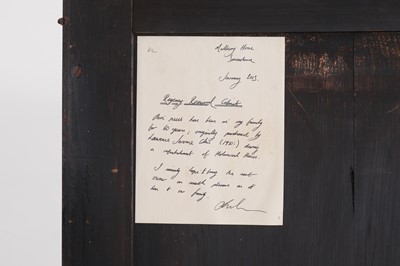 House
January 2013.
Regency Rosewood Cabinet
This piece has been in my family
for 60 years; originally purchased by
(1951) during
a refurbishment of House
I sincerely hope it brings the next
owner as much pleasure as it
has to our family